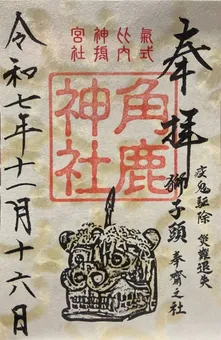 奉拝
疫鬼駆除 災難退失
獅子頭 奉齋之社
氣比神宮
式内摂社
角鹿
神社
令和七年十一月十六日